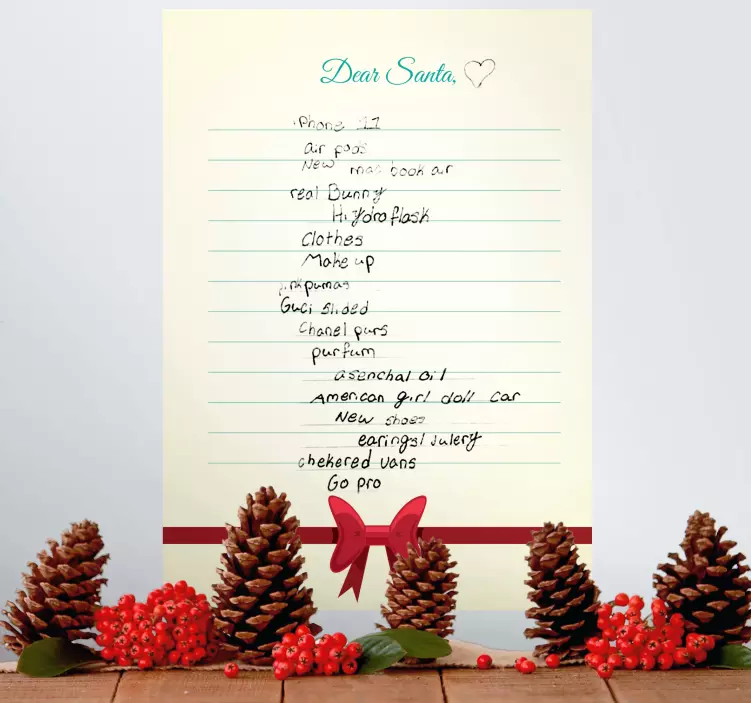 Dear Santa,
iphone 11
air pods
New mac book air
real Bunny
Hydroflask
Clothes
Make up
pinkpumas
Guci slided
Chanel purs
purfum
asenchal oil
American girl doll car
New shoes
earings/julery
chekered vans
Go pro